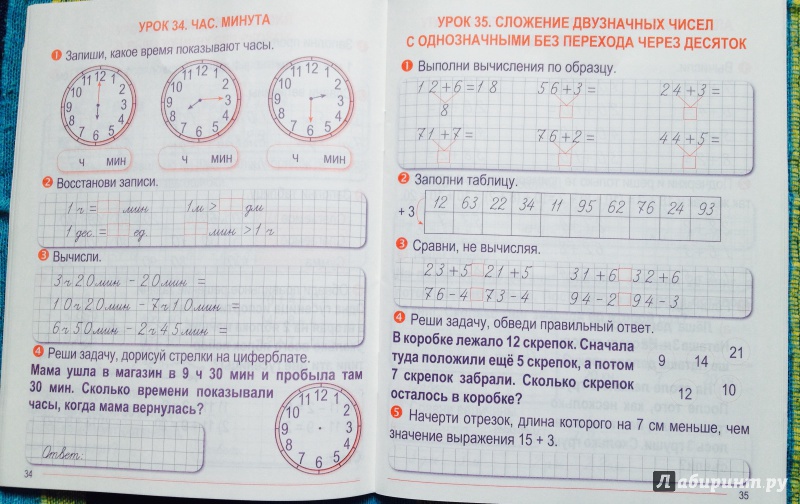 УРОК 34. ЧАС. МИНУТА
1 Запиши, какое время показывают часы.
12 1 2 3 4 5 6 7 8 9 10 11
12 1 2 3 4 5 6 7 8 9 10 11
12 1 2 3 4 5 6 7 8 9 10 11
ч мин ч мин ч мин
2 Восстанови записи.
1 ч = мин 1 м > дм
1 дес. = ед. мин > 1 ч
3 Вычисли.
3 ч 20 мин - 20 мин =
10 ч 20 мин - 7 ч 10 мин =
6 ч 50 мин - 2 ч 45 мин =
4 Реши задачу, дорисуй стрелки на циферблате.
Мама ушла в магазин в 9 ч 30 мин и пробыла там
30 мин. Сколько времени показывали
часы, когда мама вернулась?
12 1 2 3 4 5 6 7 8 9 10 11
Ответ:
34
УРОК 35. СЛОЖЕНИЕ ДВУЗНАЧНЫХ ЧИСЕЛ
С ОДНОЗНАЧНЫМИ БЕЗ ПЕРЕХОДА ЧЕРЕЗ ДЕСЯТОК
1 Выполни вычисления по образцу.
12+6=18 56+3= 24+3=
8
71+7= 76+2= 44+5=
2 Заполни таблицу.
+ 3 12 63 22 34 11 95 62 76 24 93
3 Сравни, не вычисляя.
23+5 21+5 31+6 32+6
76-4 73-4 94-2 94-3
4 Реши задачу, обведи правильный ответ.
В коробке лежало 12 скрепок. Сначала
туда положили ещё 5 скрепок, а потом
7 скрепок забрали. Сколько скрепок
осталось в коробке?
9 14 21
12 10
5 Начерти отрезок, длина которого на 7 см меньше, чем
значение выражения 15 + 3.
35
Лабиринт.ру